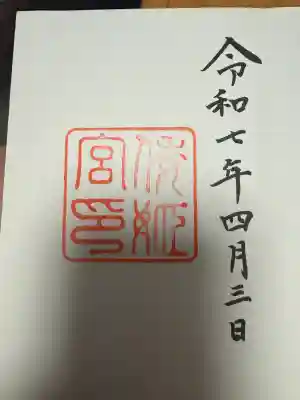 令和七年四月三日
佐姫
宮印